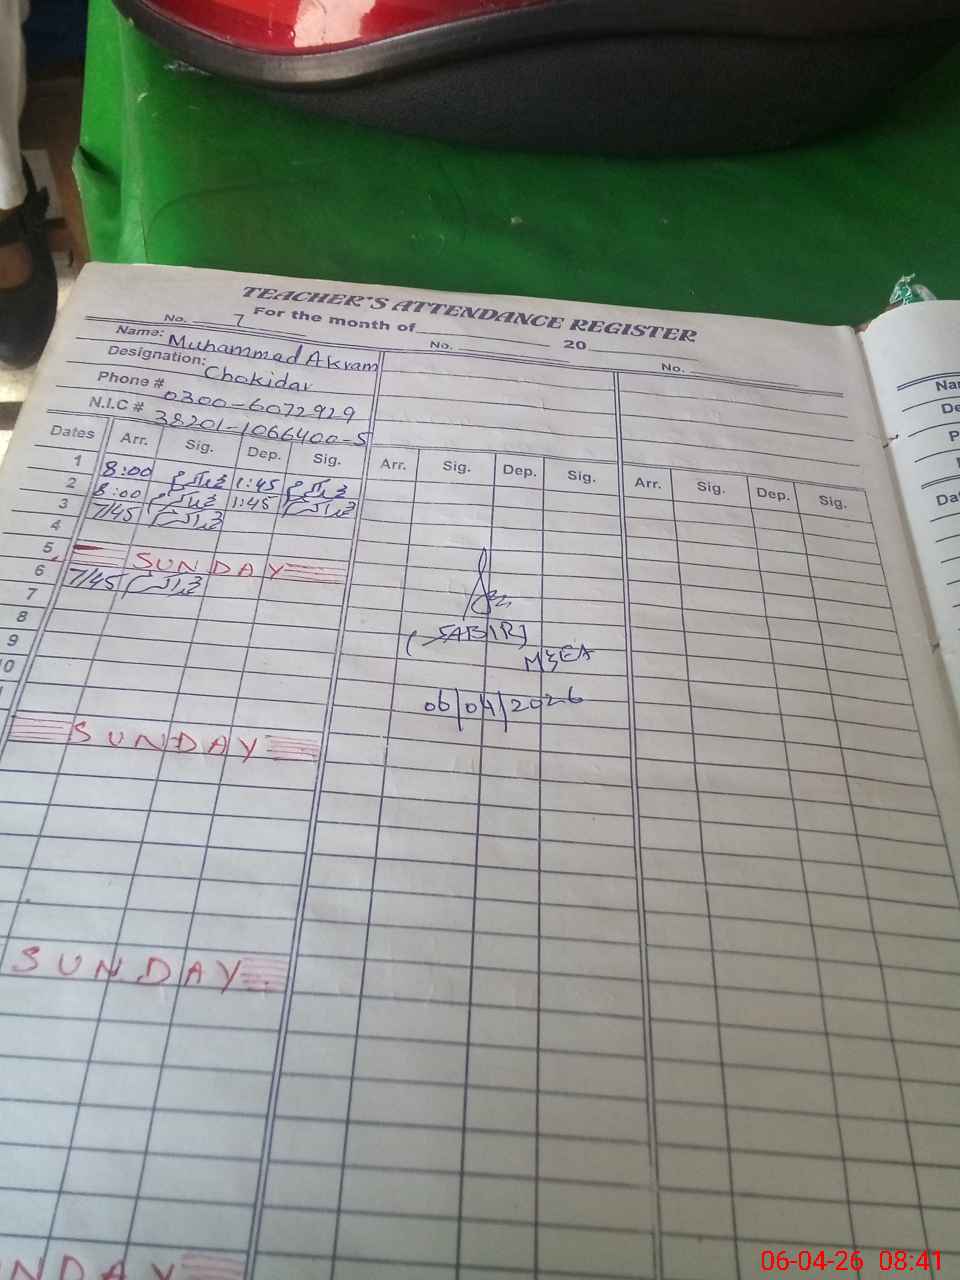 TEACHER'S ATTENDANCE REGISTER
For the month of 20
No. 7 No. No.
Name: Muhammad Akram
Designation: Chokidar
Phone # 0300-6072929
N.I.C # 38201-1066400-5
Dates Arr. Sig. Dep. Sig. Arr. Sig. Dep. Sig. Arr. Sig. Dep. Sig.
1 8:00 محمد اکرم 1:45 محمد اکرم
2 8:00 محمد اکرم 1:45 محمد اکرم
3 7/45 محمد اکرم
4
5 SUNDAY
6 7/45 محمد اکرم
7
8
9
10
(SABIR)
MEA
06/04/2026
SUNDAY
SUNDAY
NDAY
Na
De
P
Da
06-04-26 08:41